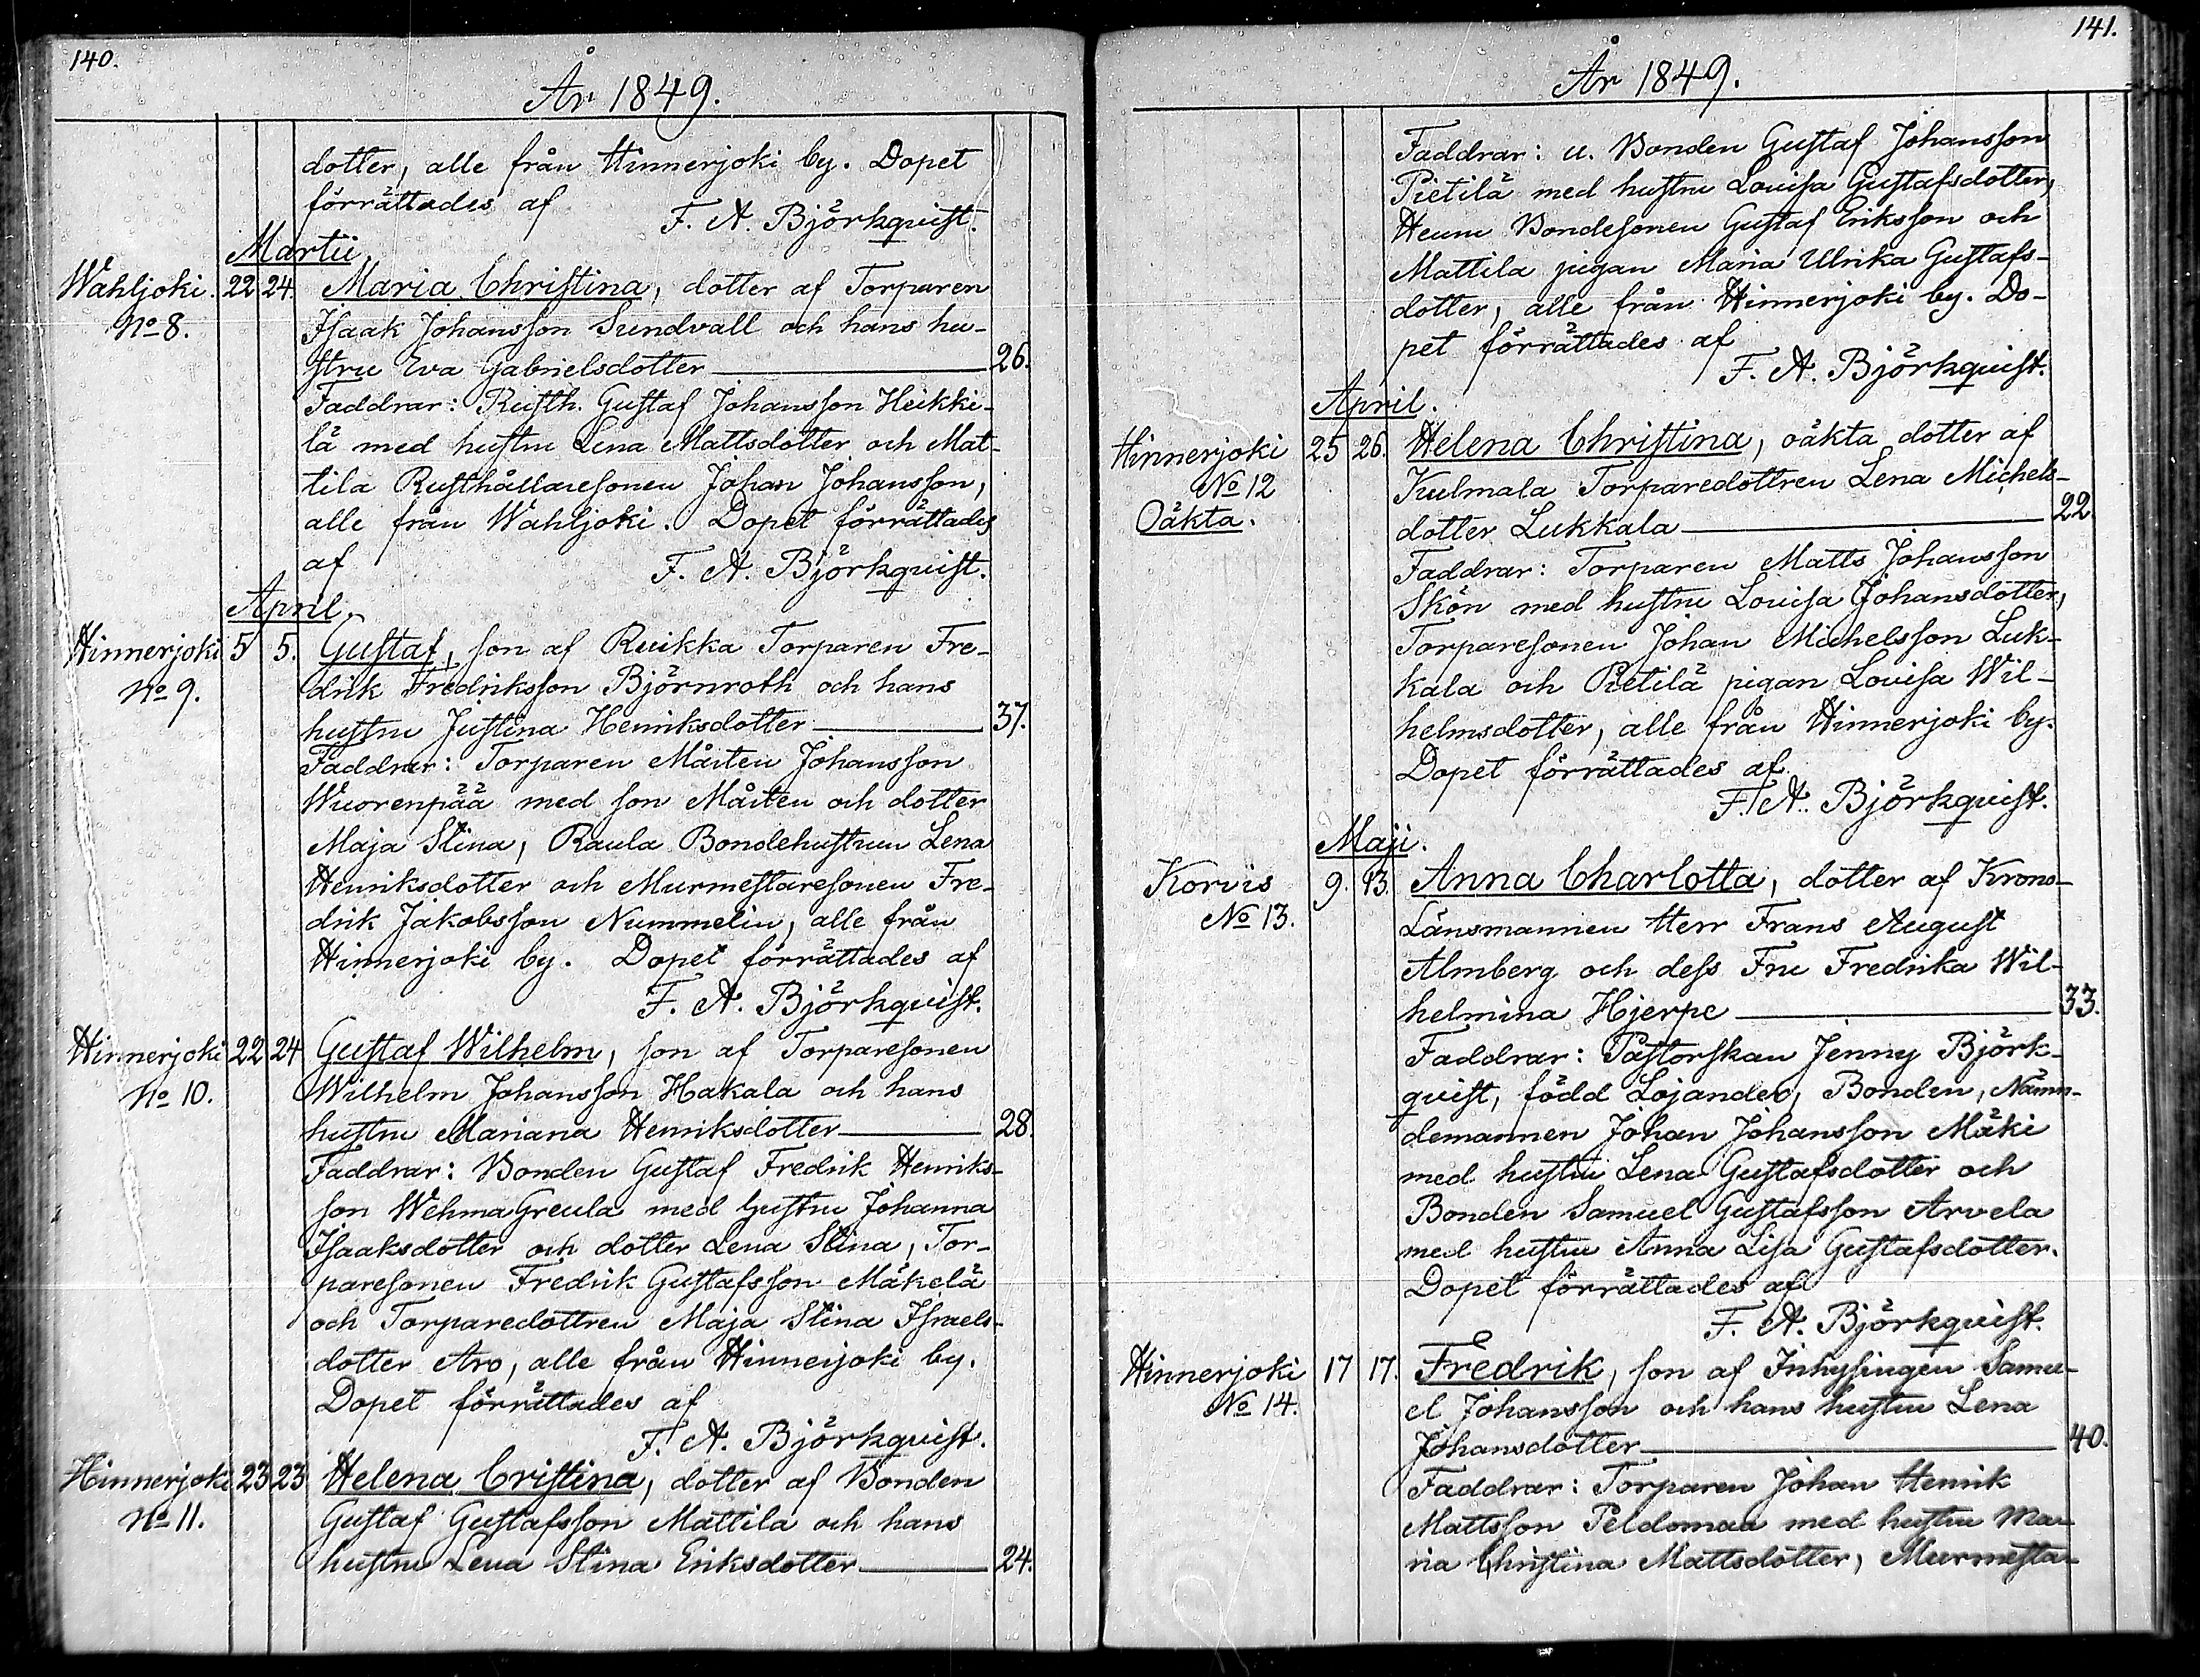 140.
År 1849.
dotter, alle från Hinnerjoki by. Dopet
förrättades af
F. A. Björkquist.
Martii
Wahljoki. 22 24. Maria Christina, dotter af Torparen
No 8. Isaak Johansson Sundvall och hans hu-
stru Eva Gabrielsdotter 26.
Faddrar: Rusth. Gustaf Johansson Heikki-
lä med hustru Lena Mattsdotter och Mat-
tila Rusthållaresonen Johan Johansson,
alle från Wahljoki. Dopet förrättades
af F. A. Björkquist.
April.
Hinnerjoki 5 5. Gustaf, son af Ruikka Torparen Fre-
No 9. drik Fredriksson Björnroth och hans
hustru Justina Henriksdotter 37.
Faddrar: Torparen Mårten Johansson
Wuorenpää med son Mårten och dotter
Maja Stina, Raula Bondehustrun Lena
Henriksdotter och Murmestaresonen Fre-
drik Jakobsson Nummelin, alle från
Hinnerjoki by. Dopet förrättades af
F. A. Björkquist.
Hinnerjoki 22 24 Gustaf Wilhelm, son af Torparesonen
No 10. Wilhelm Johansson Hakala och hans
hustru Mariana Henriksdotter 28.
Faddrar: Bonden Gustaf Fredrik Henriks-
son Wehma Greula med hustru Johanna
Isaaksdotter och dotter Lena Stina, Tor-
paresonen Fredrik Gustafsson Mäkelä
och Torparedottren Maja Stina Israels-
dotter Aro, alle från Hinnerjoki by.
Dopet förrättades af
F. A. Björkquist.
Hinnerjoki 23 23 Helena Cristina, dotter af Bonden
No 11. Gustaf Gustafsson Mattila och hans
hustru Lena Stina Eriksdotter 24.
141.
År 1849.
Faddrar: u. Bonden Gustaf Johansson
Pietilä med hustru Lovisa Gustafsdotter,
Heum Bondesonen Gustaf Eriksson och
Mattila pigan Maria Ulrika Gustafs-
dotter, alle från Hinnerjoki by. Do-
pet förrättades af
F. A. Björkquist.
April.
Hinnerjoki 25 26. Helena Christina, oäkta dotter af
No 12 Kulmala Torparedottren Lena Michels-
Oäkta. dotter Lukkala 22.
Faddrar: Torparen Matts Johansson
Skön med hustru Lovisa Johansdotter,
Torparesonen Johan Michelsson Luk-
kala och Pietilä pigan Lovisa Wil-
helmsdotter, alle från Hinnerjoki by.
Dopet förrättades af
F. A. Björkquist.
Maji.
Korvis 9. 13. Anna Charlotta, dotter af Krono-
No 13. Länsmannen Herr Frans August
Almberg och dess Fru Fredrika Wil-
helmina Hjerpe 33.
Faddrar: Pastorskan Jenny Björk-
quist, född Lojander, Bonden, Nämn-
demannen Johan Johansson Mäki
med hustru Lena Gustafsdotter och
Bonden Samuel Gustafsson Arvela
med hustru Anna Lisa Gustafsdotter.
Dopet förrättades af
F. A. Björkquist.
Hinnerjoki 17 17. Fredrik, son af Inhysingen Samu-
No 14. el Johansson och hans hustru Lena
Johansdotter 40.
Faddrar: Torparen Johan Henrik
Mattsson Peldomaa med hustru Ma-
ria Christina Mattsdotter, Murmesta-